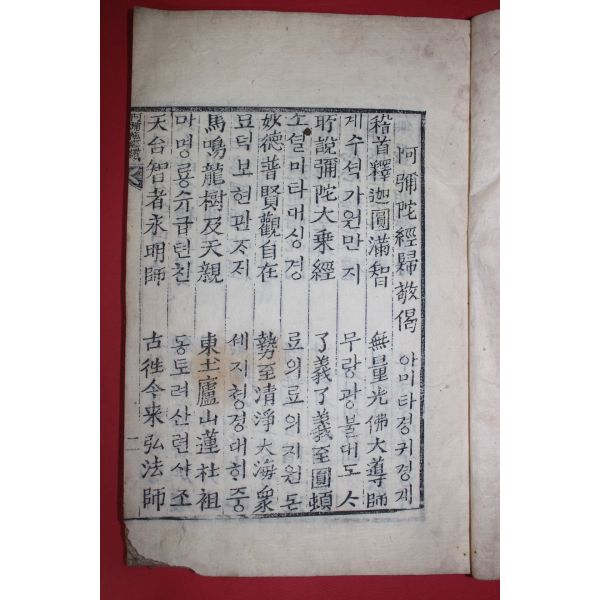 阿彌陀經歸敬偈 아미타경귀경게
稽首釋迦圓滿智 無量光佛大導師
계수석가원만지 무량광불대도ᄉᆞ
所說彌陀大乘經 了義了義至圓頓
소셜미타대싱경 료의료의지원돈
妙德普賢觀自在 勢至清淨大海衆
묘덕보현관ᄌᆞᄌᆡ 셰지쳥졍대ᄒᆡ즁
馬鳴龍樹及天親 東土廬山蓮社祖
마명룡슈급텬친 동토려산련샤조
天台智者永明師 古徃今来弘法師
二